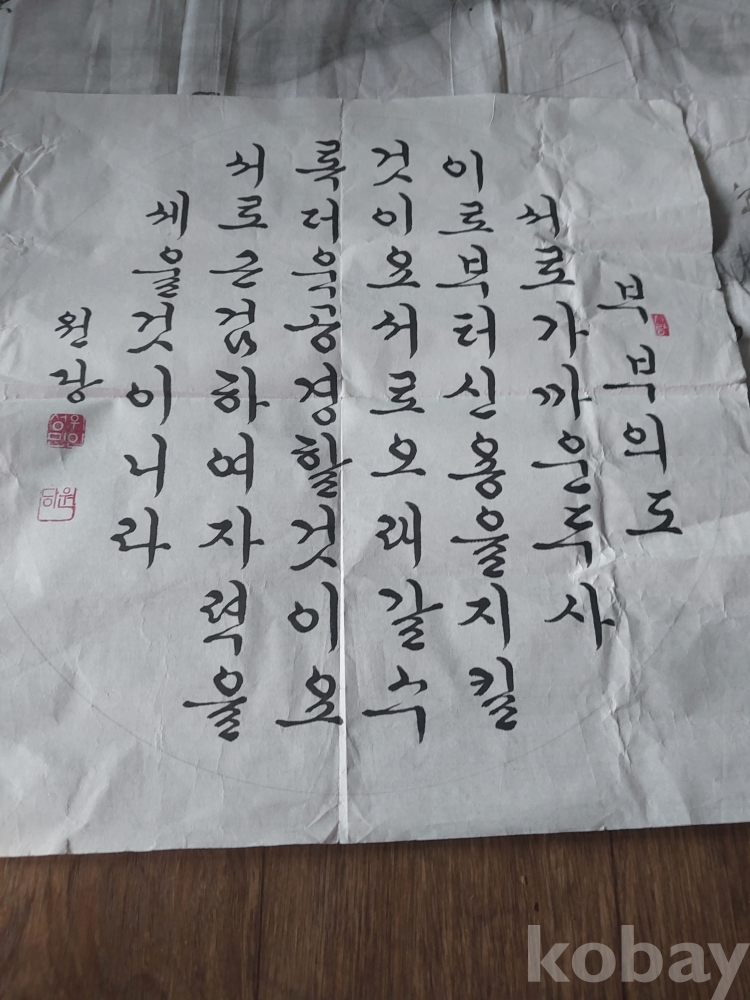 부부의도
서로가까운두사
이로부터신용을지킬
것이요서로오래갈수
록더욱공경할것이요
서로근검하여자력을
세울것이니라
kobay